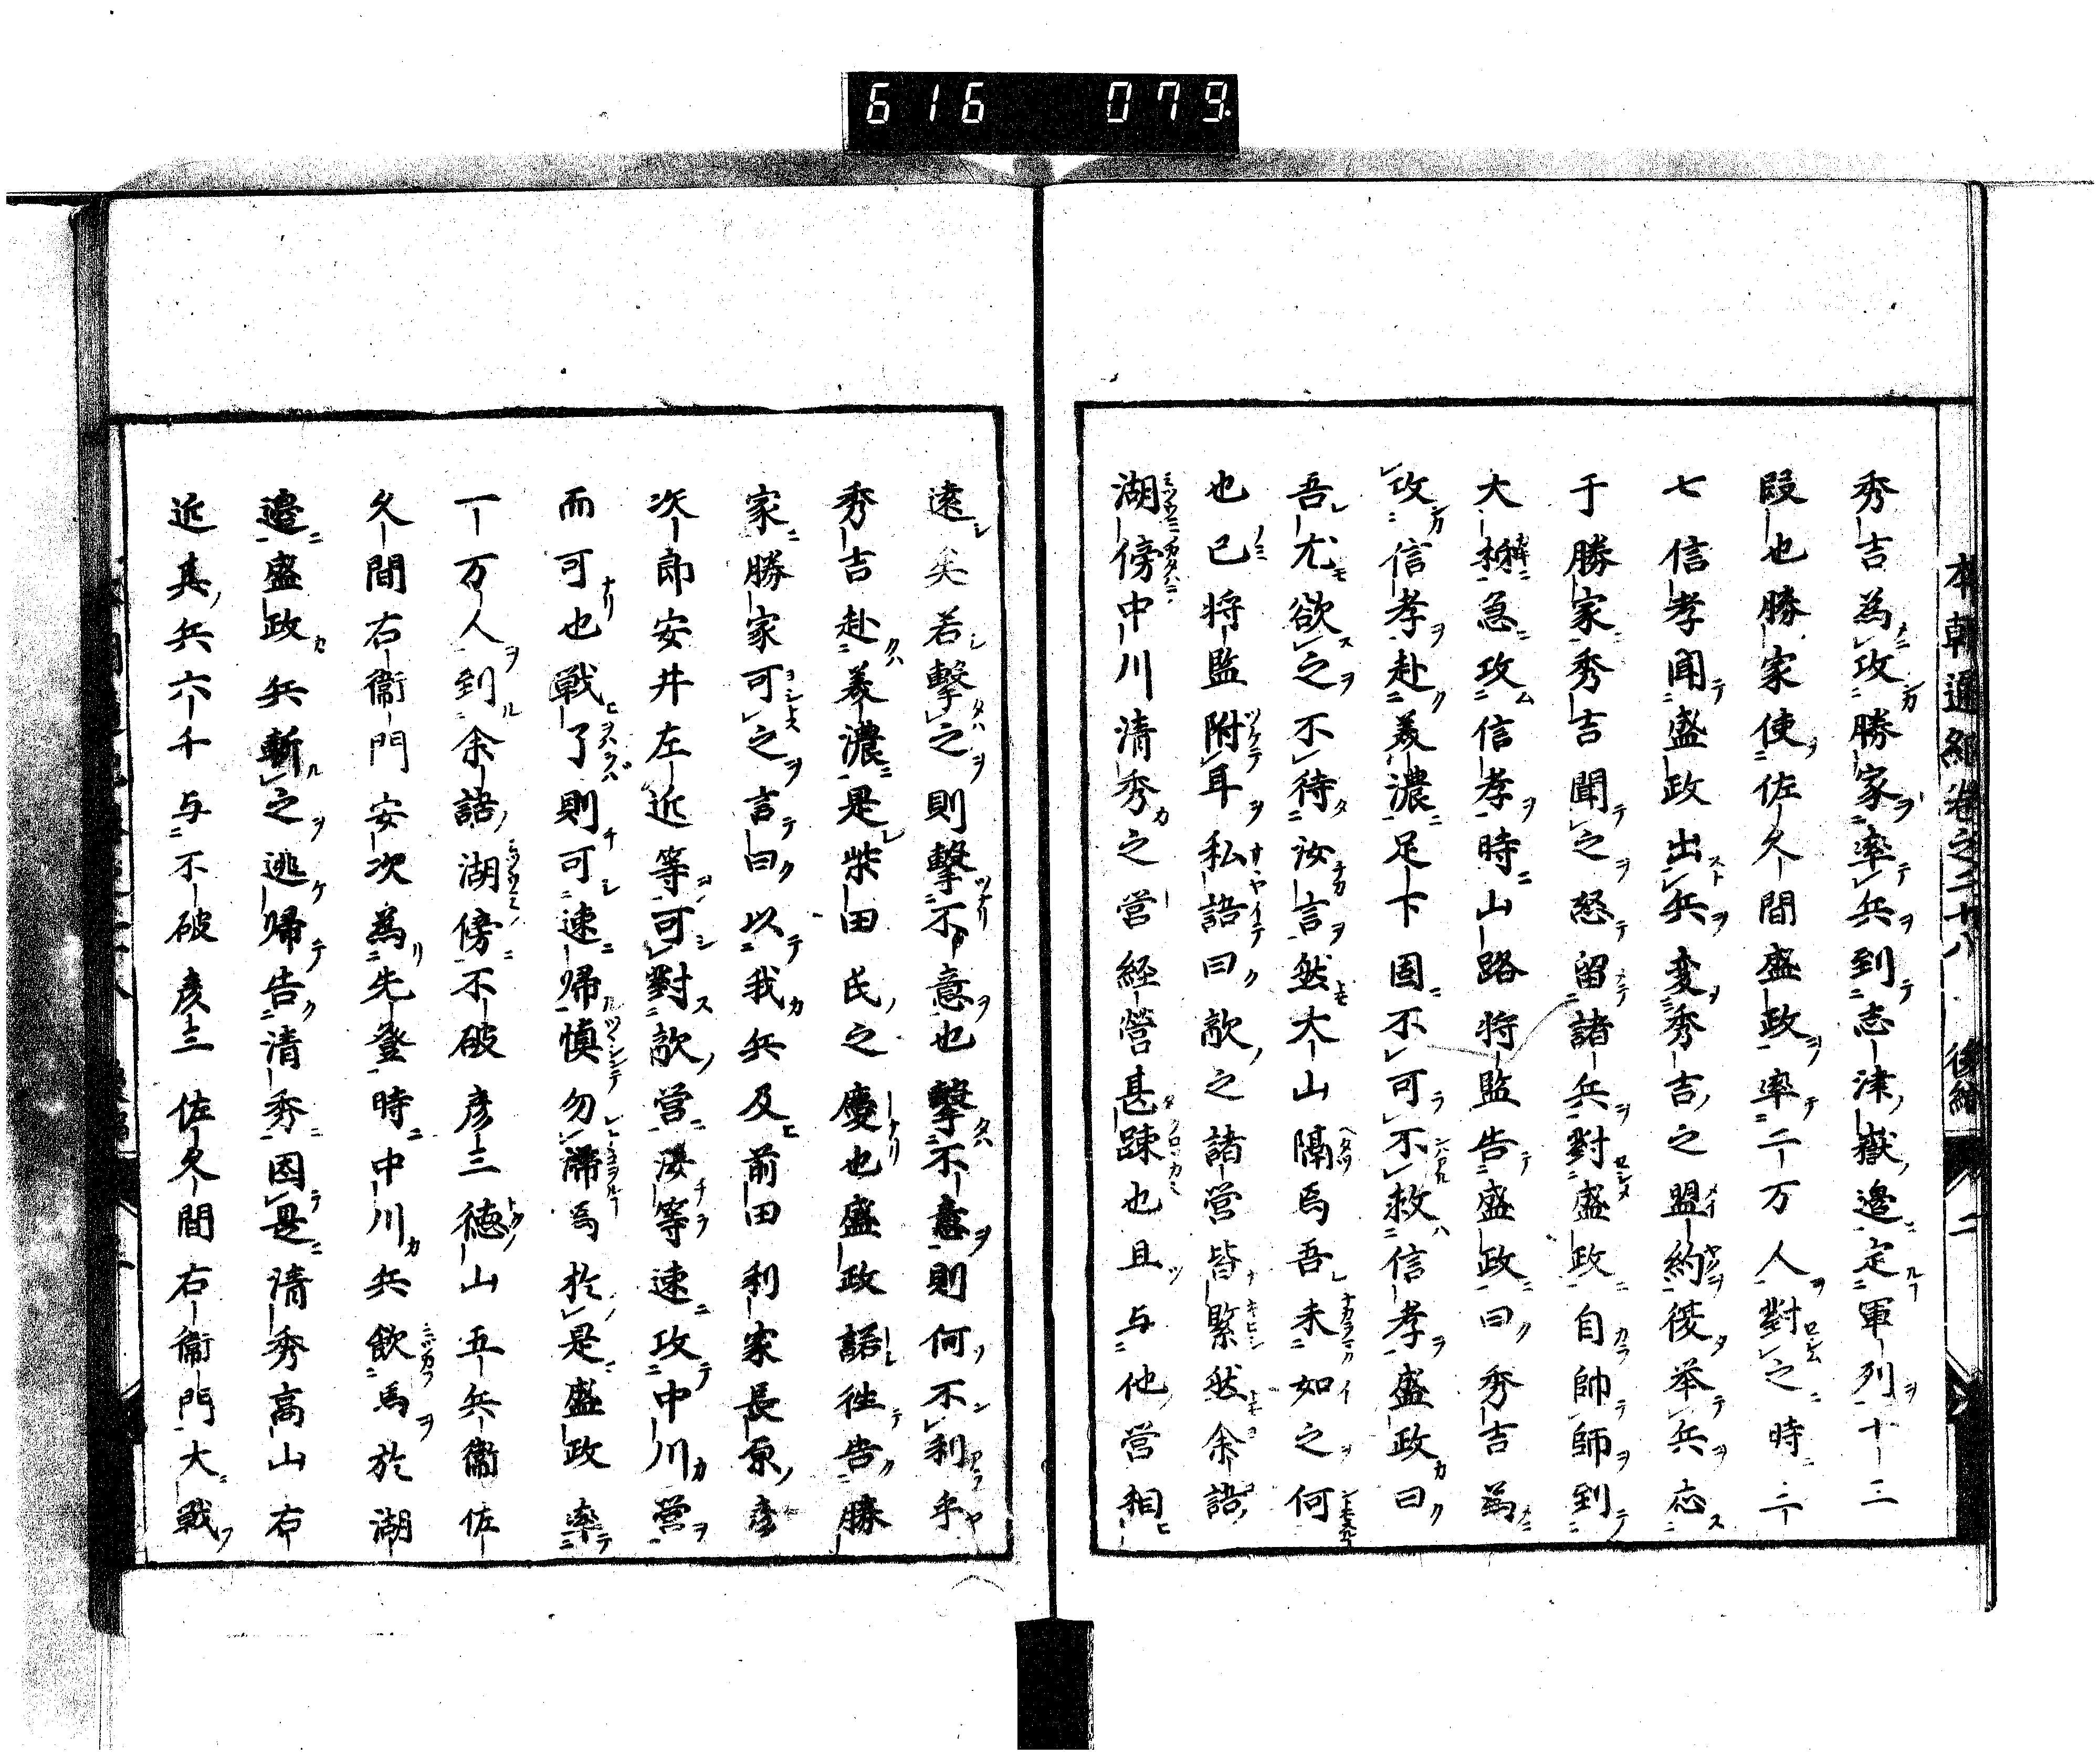 616 079
本朝通紀卷之二十八 後編 二
秀吉為攻勝家率兵到志津嶽邉定軍列十三
段也勝家使佐久間盛政率二万人對之時三
七信孝聞盛政出兵変秀吉之盟約後举兵応
于勝家秀吉聞之怒留諸兵對盛政自帥師到
大柳急攻信孝時山路将監告盛政曰秀吉為
攻信孝赴美濃足下固不可不救信孝盛政曰
吾尤欲之不待汝言然大山隔焉吾未如之何
也已将監附耳私語曰敵之諸營皆緊然余語
湖傍中川清秀之営経營甚踈也且与他営相
遠矣若擊之則擊不意也擊不意則何不利乎
秀吉赴美濃是柴田氏之慶也盛政話徃告勝
家勝家可之言曰以我兵及前田利家長原彦
次郎安井左近等可對敵営汝等速攻中川営
而可也戦了則可速帰慎勿滯焉於是盛政率
一万人到余語湖傍不破彦三徳山五兵衞佐
久間右衞門安次為先登時中川兵飲馬於湖
邉盛政兵斬之逃帰告清秀因是清秀高山右
近其兵六千与不破彦三佐久間右衞門大戦